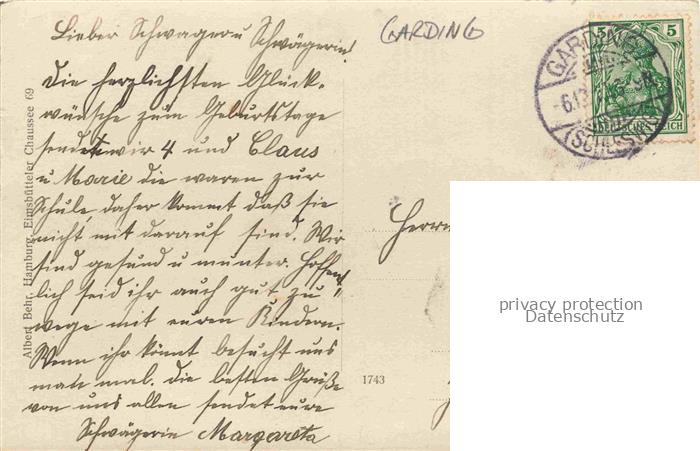 Lieber Schwager u Schwägerin!
Die herzlichsten Glück-
wünsche zum Geburtstage
senden wir 4 und Claus
u Marie die waren zur
Schule, daher kommt daß sie
nicht mit darauf sind. Wir
sind gesund u munter. Hoffent
lich seid ihr auch gut zu
wege mit euren Kindern.
Wenn ihr könnt besucht uns
mal. Die besten Grüße
von uns allen sendet eure
Schwägerin Margareta
Albert Behr, Hamburg, Eimsbütteler Chaussee 69
GARDING
GARDING
(SCHLESWIG)
5 5
DEUTSCHES REICH
Herrn
1743
privacy protection
Datenschutz